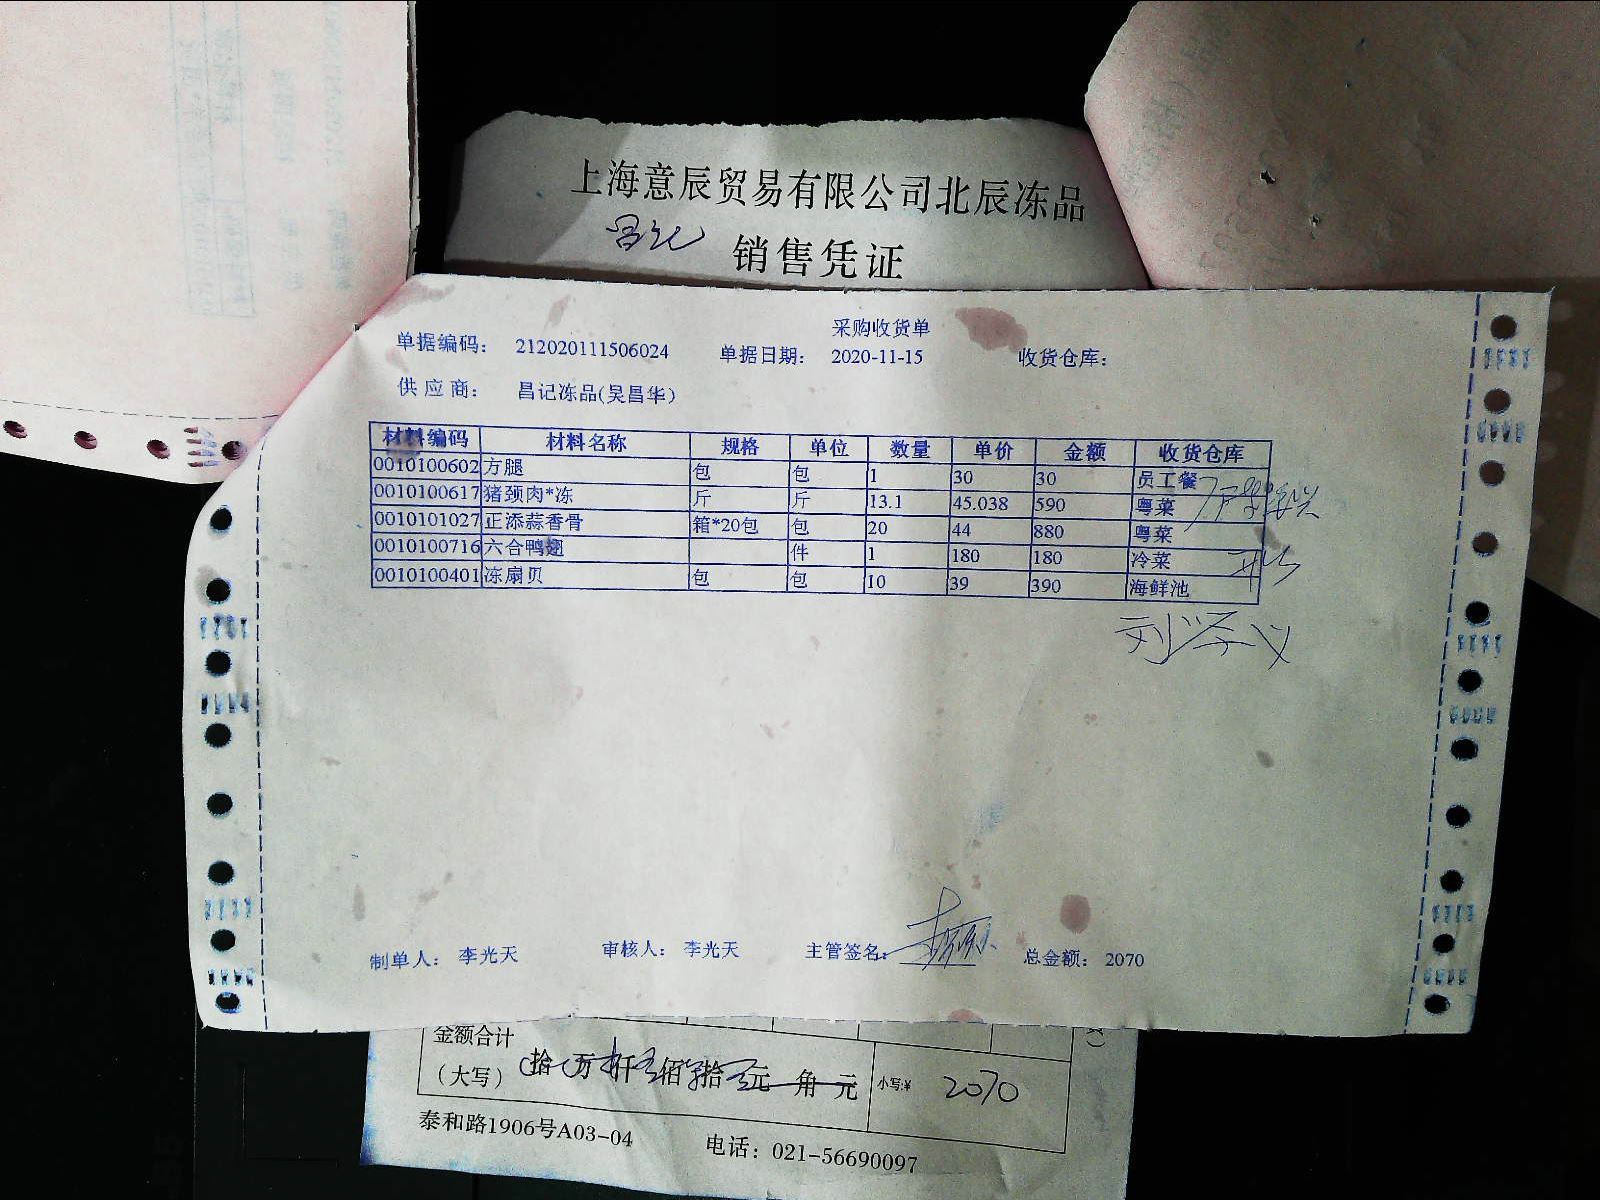 上海意辰贸易有限公司北辰冻品
昌记 销售凭证
采购收货单
单据编码： 212020111506024 单据日期： 2020-11-15 收货仓库：
供 应 商： 昌记冻品(吴昌华)
材料编码 材料名称 规格 单位 数量 单价 金额 收货仓库
0010100602 方腿 包 包 1 30 30 员工餐
0010100617 猪颈肉*冻 斤 斤 13.1 45.038 590 粤菜
0010101027 正添蒜香骨 箱*20包 包 20 44 880 粤菜
0010100716 六合鸭翅 件 1 180 180 冷菜
0010100401 冻扇贝 包 包 10 39 390 海鲜池
制单人： 李光天 审核人： 李光天 主管签名： 总金额： 2070
金额合计
（大写） 拾 万 仟 佰 拾 元 角 元 小写:¥ 2070
泰和路1906号A03-04 电话：021-56690097